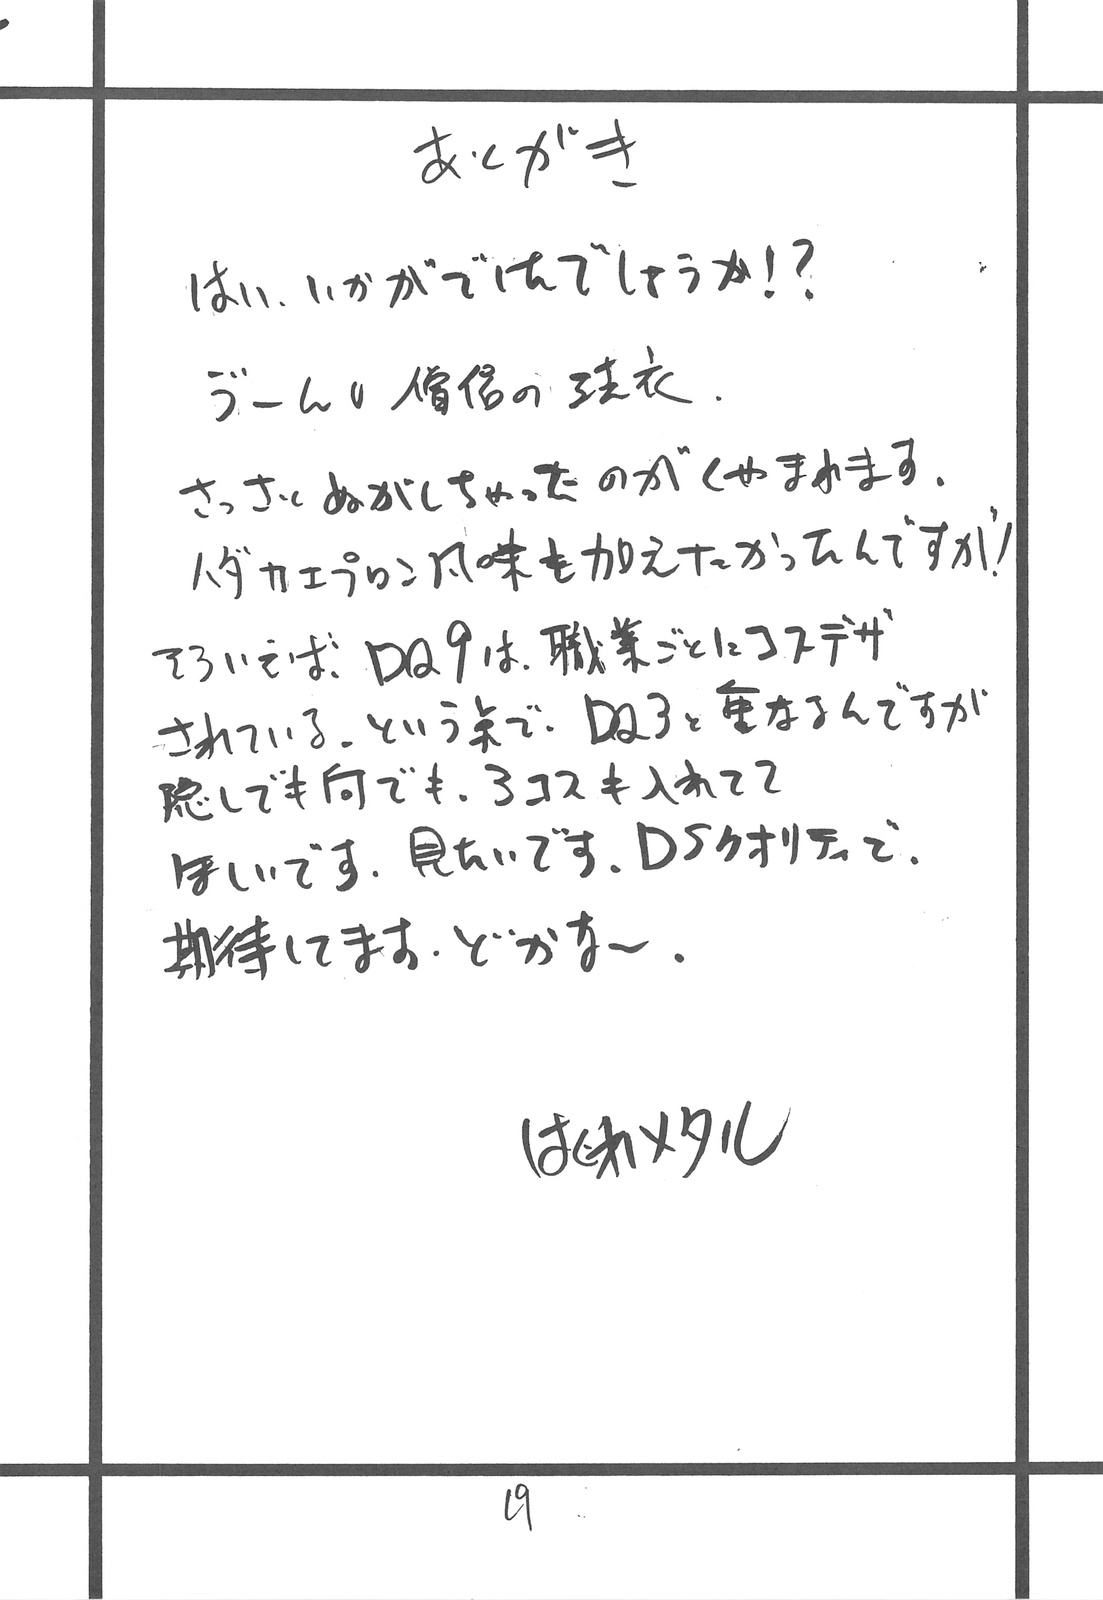 あとがき
はい、いかがでしたでしょうか!?
うーん 僧侶の 衣.
さっさと ぬがしちゃったのがくやまれます.
ハダカエプロン風味も加えたかったんですが!
そういえば、DQ9は、職業ごとにコスデザ
されている.という点で、DQ3と重なるんですが
隠しでも何でも.3コスも入れてて
ほしいです.見たいです.DSクオリティで.
期待してます.どかな〜.
はぐれメタル
19